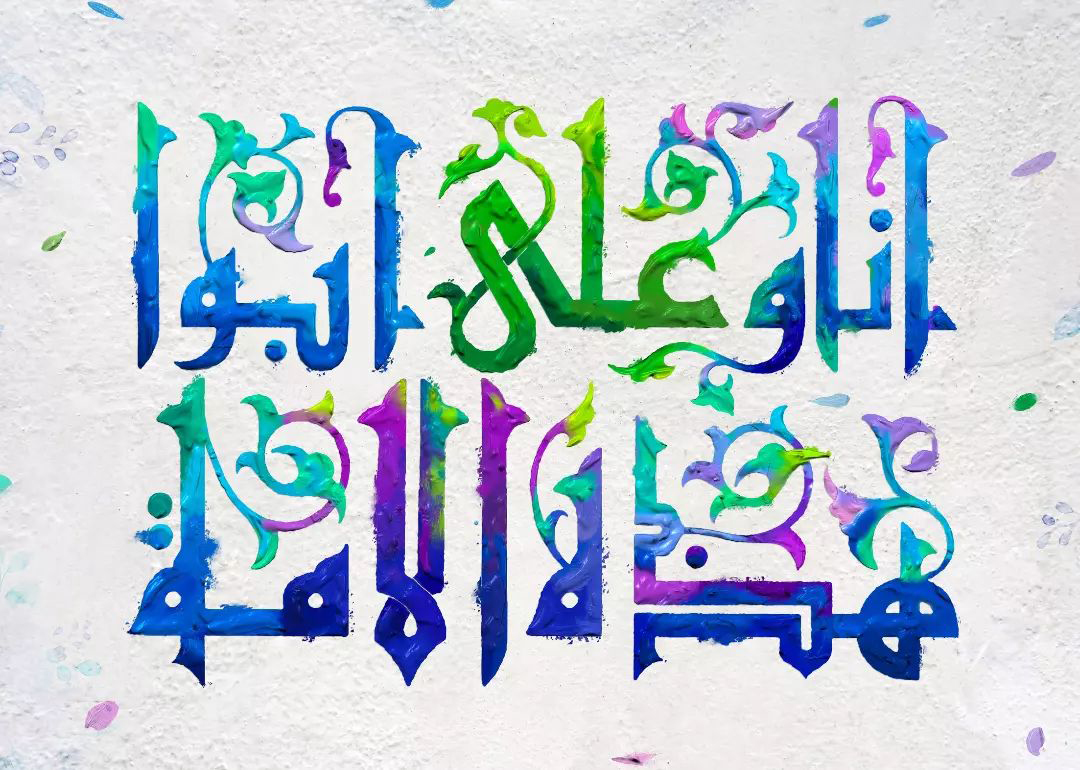 انا و علی ابوا
هذه الامة